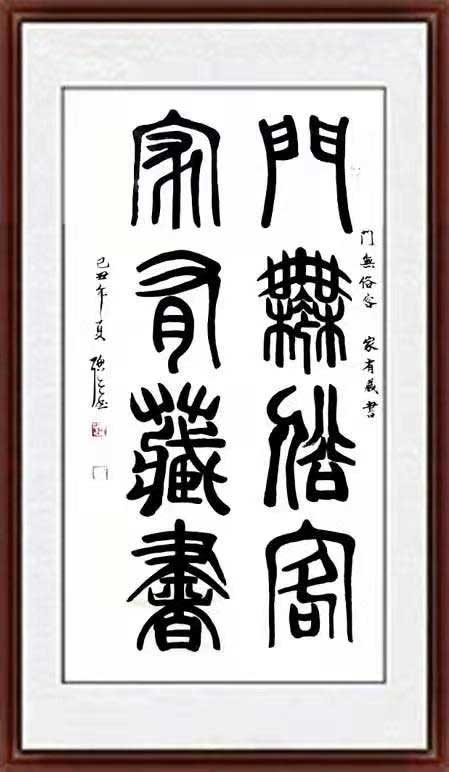 門無俗客
家有藏書
门無俗客 家有藏書
己丑年夏